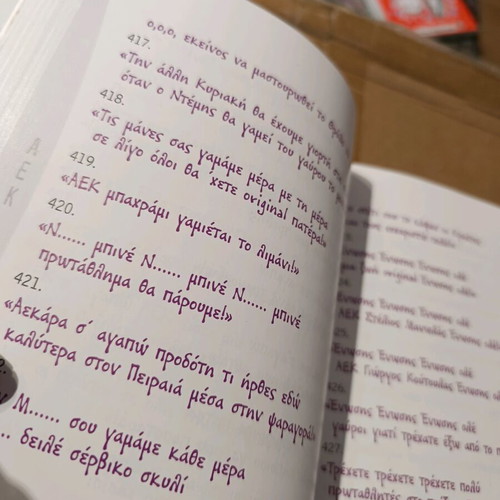 ο,ο,ο, εκείνος να μαστουρωθεί το
417.
«Την άλλη Κυριακή θα έχουμε γιορτή,
όταν ο Ντέμης θα γαμεί του γαύρου το
418.
«Τις μάνες σας γαμάμε μέρα με τη μέρα
σε λίγο όλοι θα 'χετε original πατέρα!»
419.
«ΑΕΚ μπαχράμι γαμιέται το λιμάνι!»
420.
«Ν...... μπινέ Ν...... μπινέ Ν...... μπινέ
πρωτάθλημα θα πάρουμε!»
421.
«Αεκάρα σ' αγαπώ προδότη τι ήρθες εδώ
καλύτερα στον Πειραιά μέσα στην ψαραγορά!»
Μ...... σου γαμάμε κάθε μέρα
... δειλέ σέρβικο σκυλί
ΑΕΚ
Ένωσης Ένωσης Ένωσης αλέ
original Ένωσης
Ένωσης Ένωσης Ένωσης αλέ
ΑΕΚ Στέλιος Μανωλάς Ένωσης αλέ
Ένωσης Ένωσης Ένωσης αλέ
ΑΕΚ Γιώργος Κούτουλας Ένωσης
426.
«Ένωσης Ένωσης Ένωσης αλέ
γαύροι γιατί τρέχατε έξω από το
427.
«Τρέχετε τρέχετε τρέχετε πολύ
πρωταθλητές